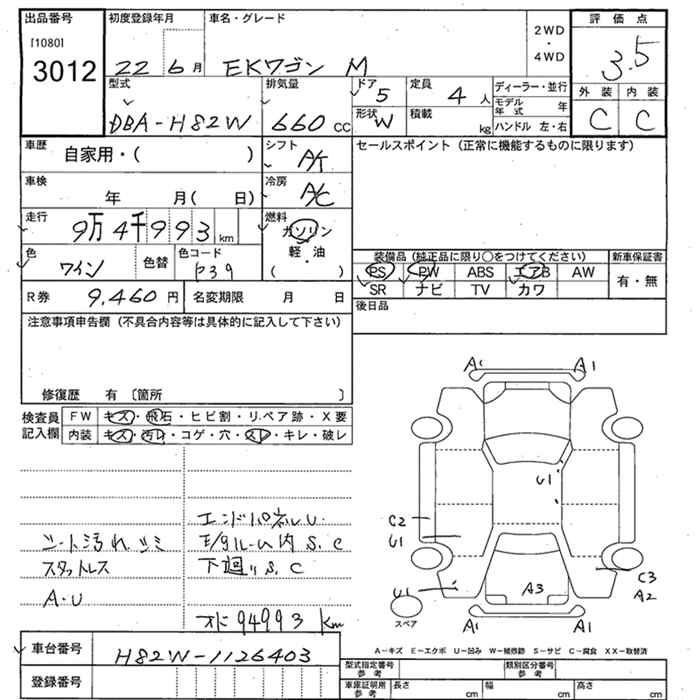 出品番号 初度登録年月 車名・グレード 2WD・4WD 評価点
[1080]
3012 22 6月 EKワゴン M 3.5
型式 排気量 ドア 定員 ディーラー・並行 外装 内装
DBA-H82W 660cc 5 4人 モデル年式 年 C C
形状 W 積載 kg ハンドル 左・右
車歴 自家用・( ) シフト A/T セールスポイント (正常に機能するものに限ります)
車検 年 月( 日) 冷房 A/C
走行 9万4千993km 燃料 ガソリン
軽・油
( )
色 ワイン 色替 色コード P39
装備品 (純正品に限り〇をつけてください) 新車保証書
PS PW ABS エアB AW 有・無
SR ナビ TV カワ
R券 9,460円 名変期限 月 日 後日品
注意事項申告欄 (不具合内容等は具体的に記入して下さい)
修復歴 有 〔箇所 〕
検査員記入欄 FW キズ・飛石・ヒビ割・リペア跡・X要
内装 キズ・汚レ・コゲ・穴・スレ・キレ・破レ
エンドパネルU.
シート汚れシミ モタルーム内 S.C
スタットレス 下廻り S.C
A・U
オド 94993 Km
A1 A1
U1
C2
U1
U1 A3 C3
A2
スペア A1 A1
A-キズ E-エクボ U-凹み W-補修跡 S-サビ C-腐食 XX-取替済
車台番号 H82W-1126403
登録番号
型式指定番号 参考 類別区分番号 参考
車庫証明用 参考 長さ cm 幅 cm 高さ cm